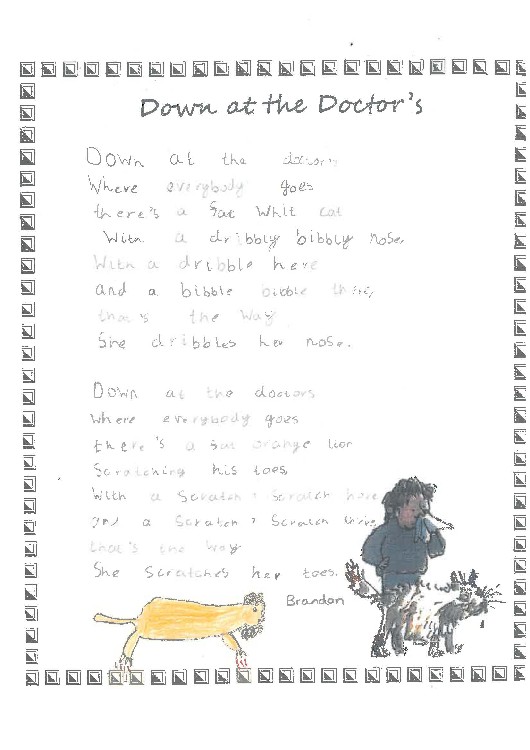 Down at the Doctor's
Down at the doctors
Where everybody goes
there's a fat Whit cat
With a dribbly bibbly nose,
With a dribble here
and a bibble bibble there,
that's the Way
She dribbles her nose.
Down at the doctors
Where everybody goes
there's a fat orange lion
Scratching his toes,
With a Scratch, Scratch here
and a Scratch, Scratch there
that's the Way
She Scratches her toes.
Brandon